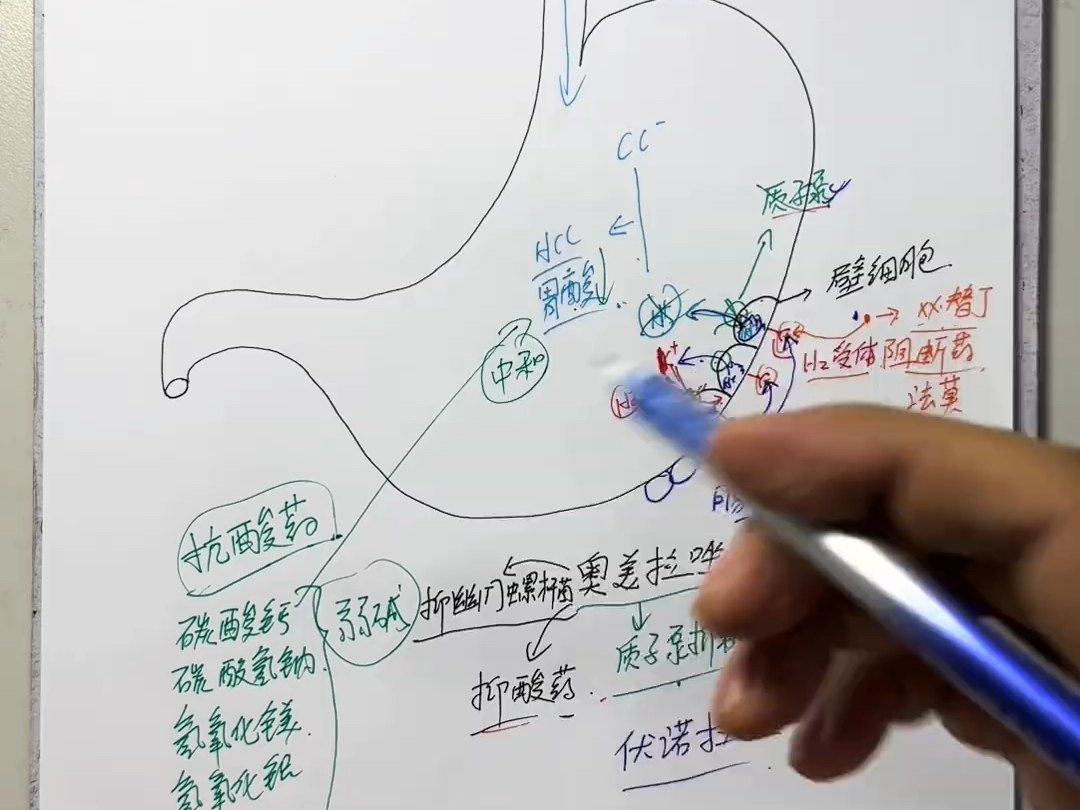 CC⁻
质子泵
HCC
胃酸
壁细胞
xx·替丁
H₂受体阻断药
法莫
H⁺
K⁺
中和
抗酸药
弱碱
抑幽门螺杆菌
奥美拉唑
碳酸钙
碳酸氢钠
氢氧化镁
氢氧化铝
抑酸药
质子泵抑
伏诺拉